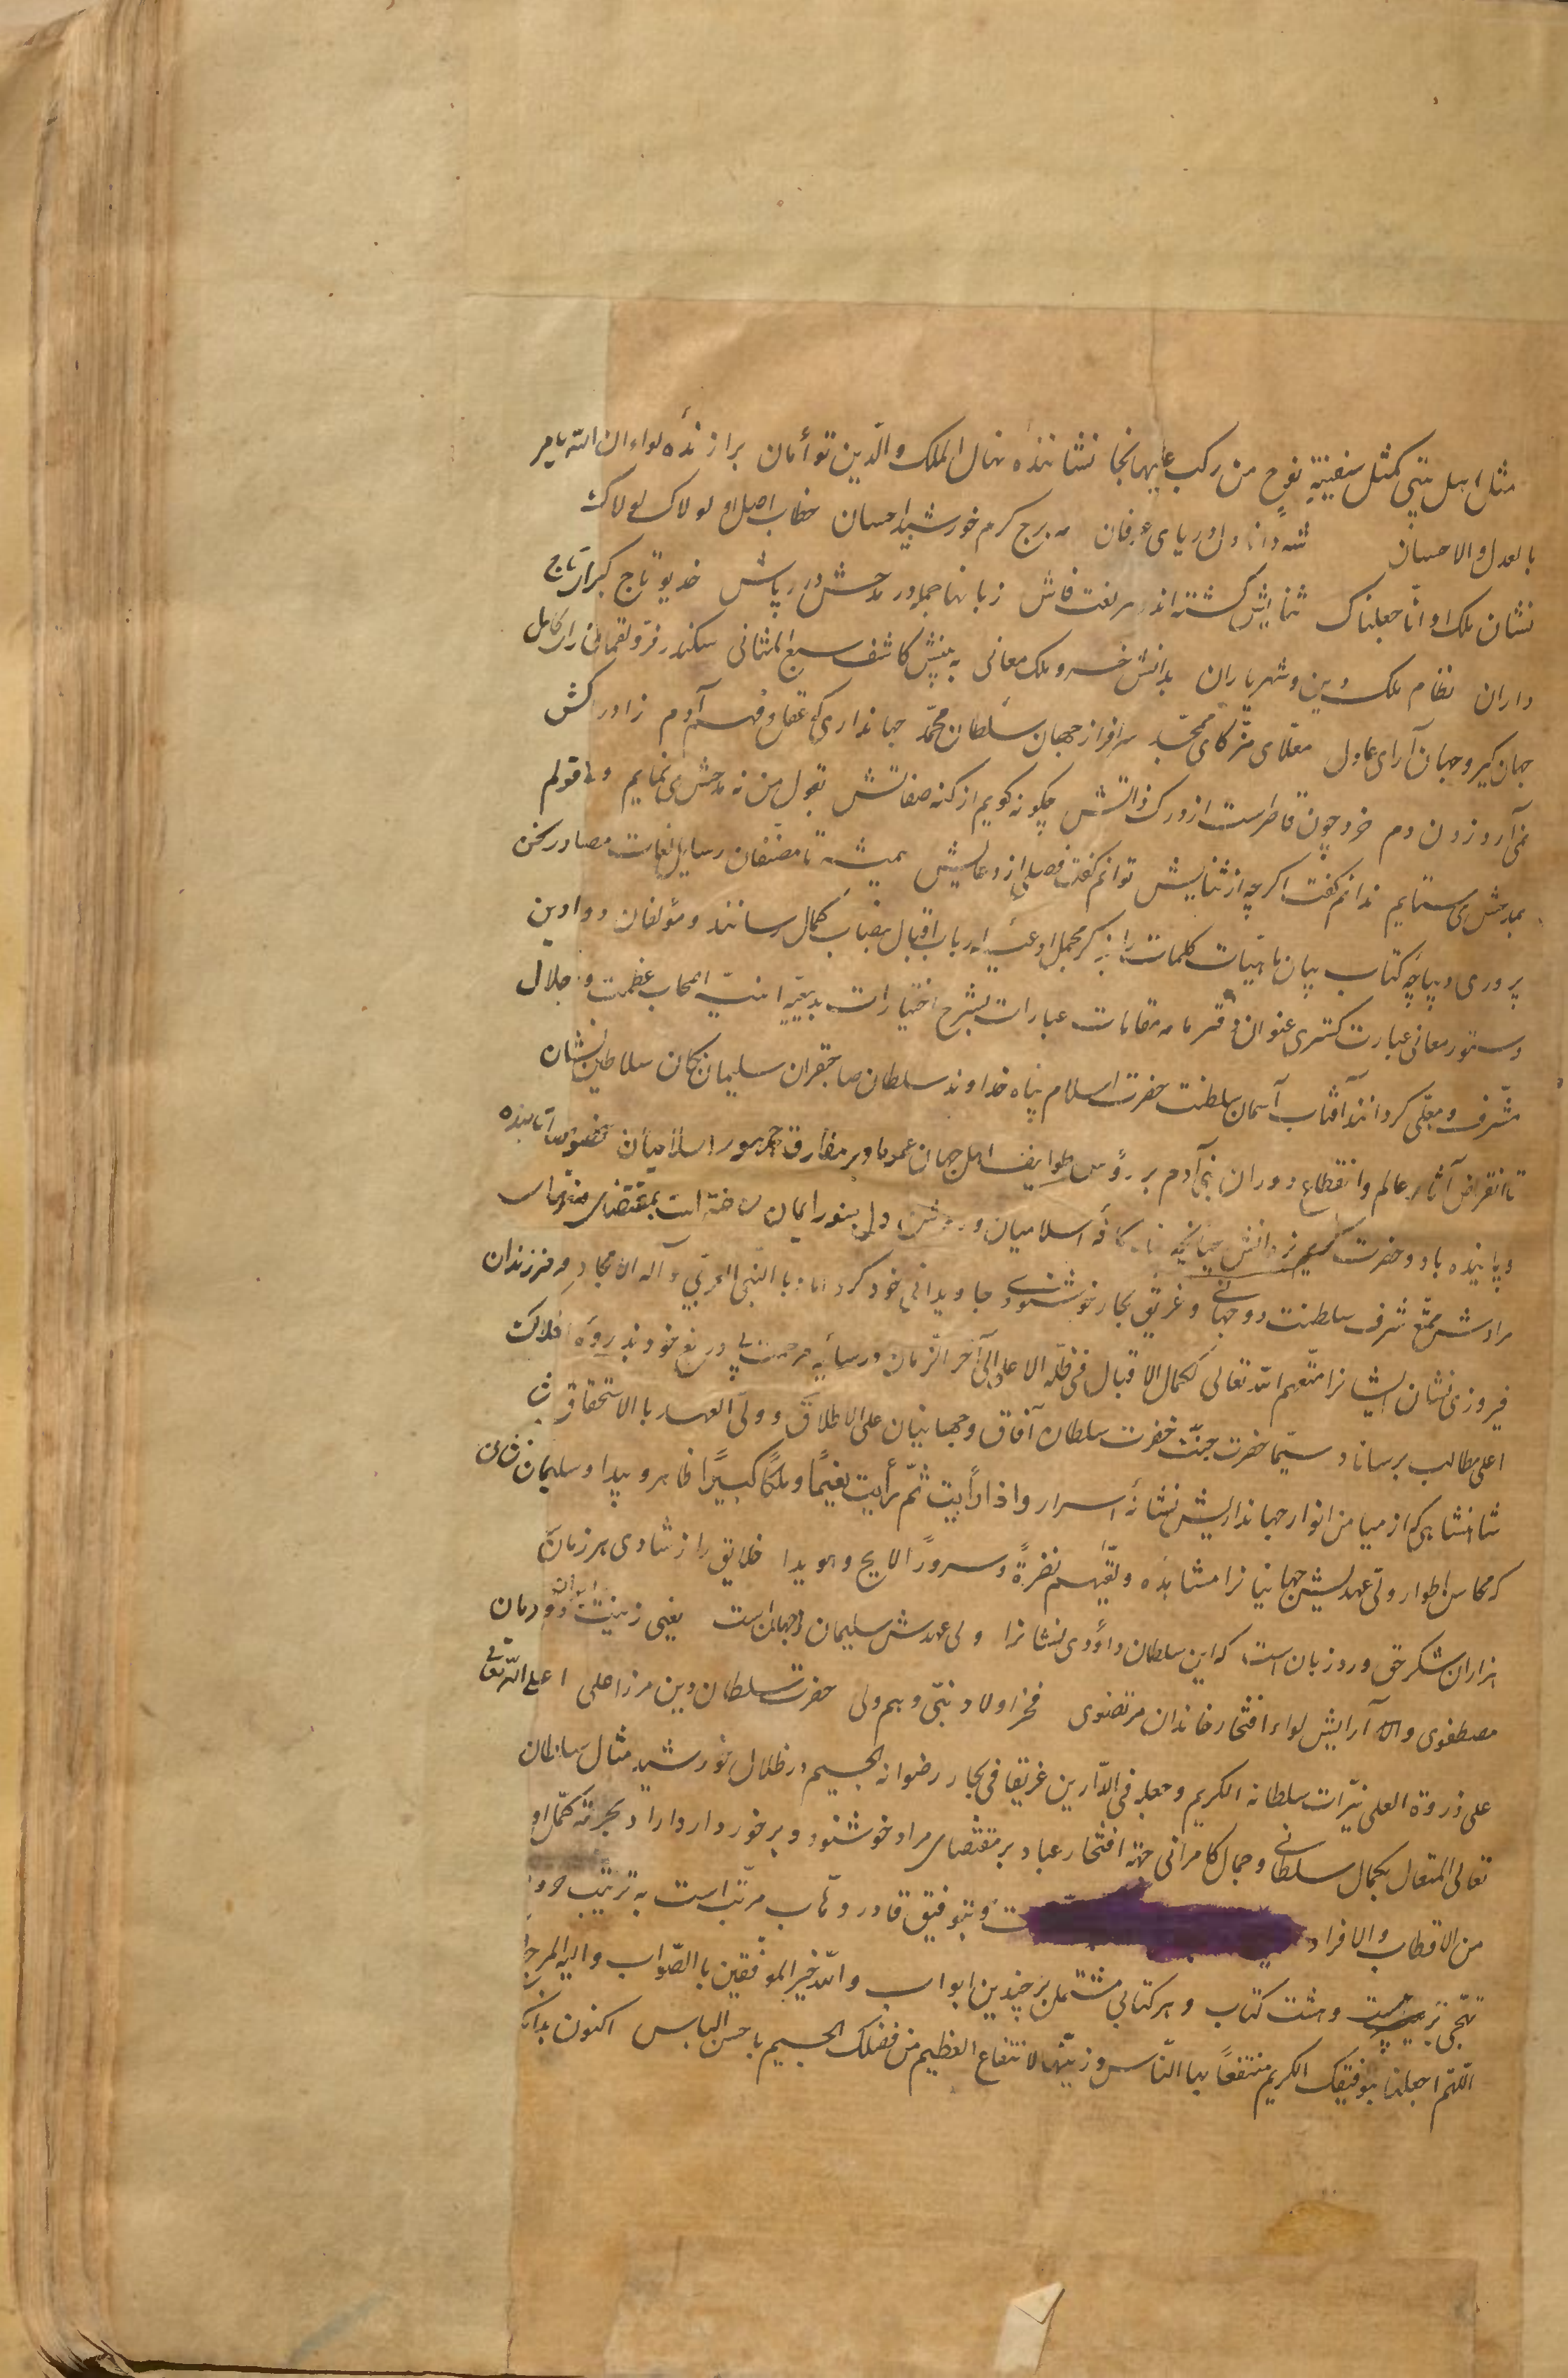 مثل اهل بیتی کمثل سفینة نوح من رکب علیها نجا نشانندهٔ نهال الملک والدّین توأمان برازندهٔ لواء ان الله یامر
بالعدل والاحسان شه دانا دل و دریای عرفان مه برج کرم خورشید احسان خطاب اصل او لولاک لولاک
نشان ملک او انّا جعلناک ثنایش کشته اند هر لغت فاش زبانها جمله در مدحش درر پاش خدیو تاج کیران تاج
داران نظام ملک و دین و شهریاران بدانش خسرو ملک معانی به بینش کاشف سبع المثانی سکندر فرّ و لقمان رای کامل
جهان کیر و جهان آرای عادل معلّای مزکّای ممجّد سرافراز جهان سلطان محمّد جهانداری که عقل و فهم آدم ز ادراکش
نمی آرد زدن دم خرد چون قاطرست از درک ذاتش چکونه کویم از کنه صفاتش بقول من نه مدحش می نمایم ولی قولم
بمدحش می ستایم ندانم کفت اکرچه از ثنایش توانم کفت فصلی از دعایش همیشه تا مصنّفان رسایل لغات مصادر سخن
پروری دیباچهٔ کتاب بیان ماهیّات کلمات را بذکر مجمل ادعیهٔ ارباب اقبال بنصاب کمال رسانند و مؤلفان دواوین
دستور معانی عبارت کستری عنوان دفتر نامهٔ مقامات عبارات بشرح اختیارات بدیعیّه اثنیهٔ اصحاب عظمت و جلال
مشرف و معلّی کردانند آفتاب آسمان سلطنت حضرت اسلام پناه خداوند سلطان صاحبقران سلیمان مکان سلاطین نشان
تا انقراض آثار عالم وانقطاع دوران بنی آدم بر رؤس طوایف اهل جهان عموما و بر مفارق جمهور اسلامیان خصوصا تابنده
و پاینده باد و حضرت کریم ذو المنش چنانچه کافهٔ اسلامیان و روشن دل بنور ایمان ساخته است بمقتضای
مرادش ممتّع شرف سلطنت دو جهانی و غریق بحار خوشنودی جاویدانی خود کرداناد بالنّبی العربی و آله الامجاد و فرزندان
فیروزی نشان ایشانرا متّعهم الله تعالی بکمال الاقبال فی ظلّه الا علی الی آخر الزمان در سایهٔ مرحمت بی دریغ خود بذروهٔ افلاک
اعلی مطالب برساناد سیّما حضرت جنّت حضرت سلطان آفاق و جهانبان علی الاطلاق و ولیّ العهد بالاستحقاق
شاهنشاهی که از میامن انوار جهانداریش نشانهٔ اسرار واذا رأیت ثمّ رأیت نعیمًا وملکًا کبیرًا ظاهر و پیدا و سلیمان
که محاسن اطوار ولی عهدیش جهانیانرا مشاهده ولقّیهم نضرةً وسرورًا لایح و هویدا خلایق را ز شادی هر زمان
هزاران شکر حق ورد زبان است که این سلطان داؤدی نشانرا ولی عهدش سلیمان جهان است یعنی زینت ایوان دودمان
مصطفوی و آرایش لواء افتخار خاندان مرتضوی فخر اولاد نبی و هم ولی حضرت سلطان دین مرزا علی اعلی الله تعالی
علی ذروة العلی نیّرات سلطانه الکریم وجعله فی الدّارین غریقا فی بحار رضوانه الجسیم در ظلال خورشید مثال سلطان
تعالی المتعال بکمال سلطانی و جمال کامرانی جهة افتخار عباد بر مقتضای مراد خوشنود و برخوردار داراد بحرمة کمّل او
من الاقطاب والافراد ت و بتوفیق قادر وهّاب مرتّب است به ترتیب حروف
تهجّی بر بیست و هشت کتاب و هر کتابی مشتمل بر چندین ابواب والله خیر الموفّقین بالصّواب والیه المرجع
اللهّم اجعلنا بتوفیقک الکریم منتفعًا بها النّاس وزیّنها لانتفاع العظیم من فضلک الجسیم باحسن الباس اکنون بدانک